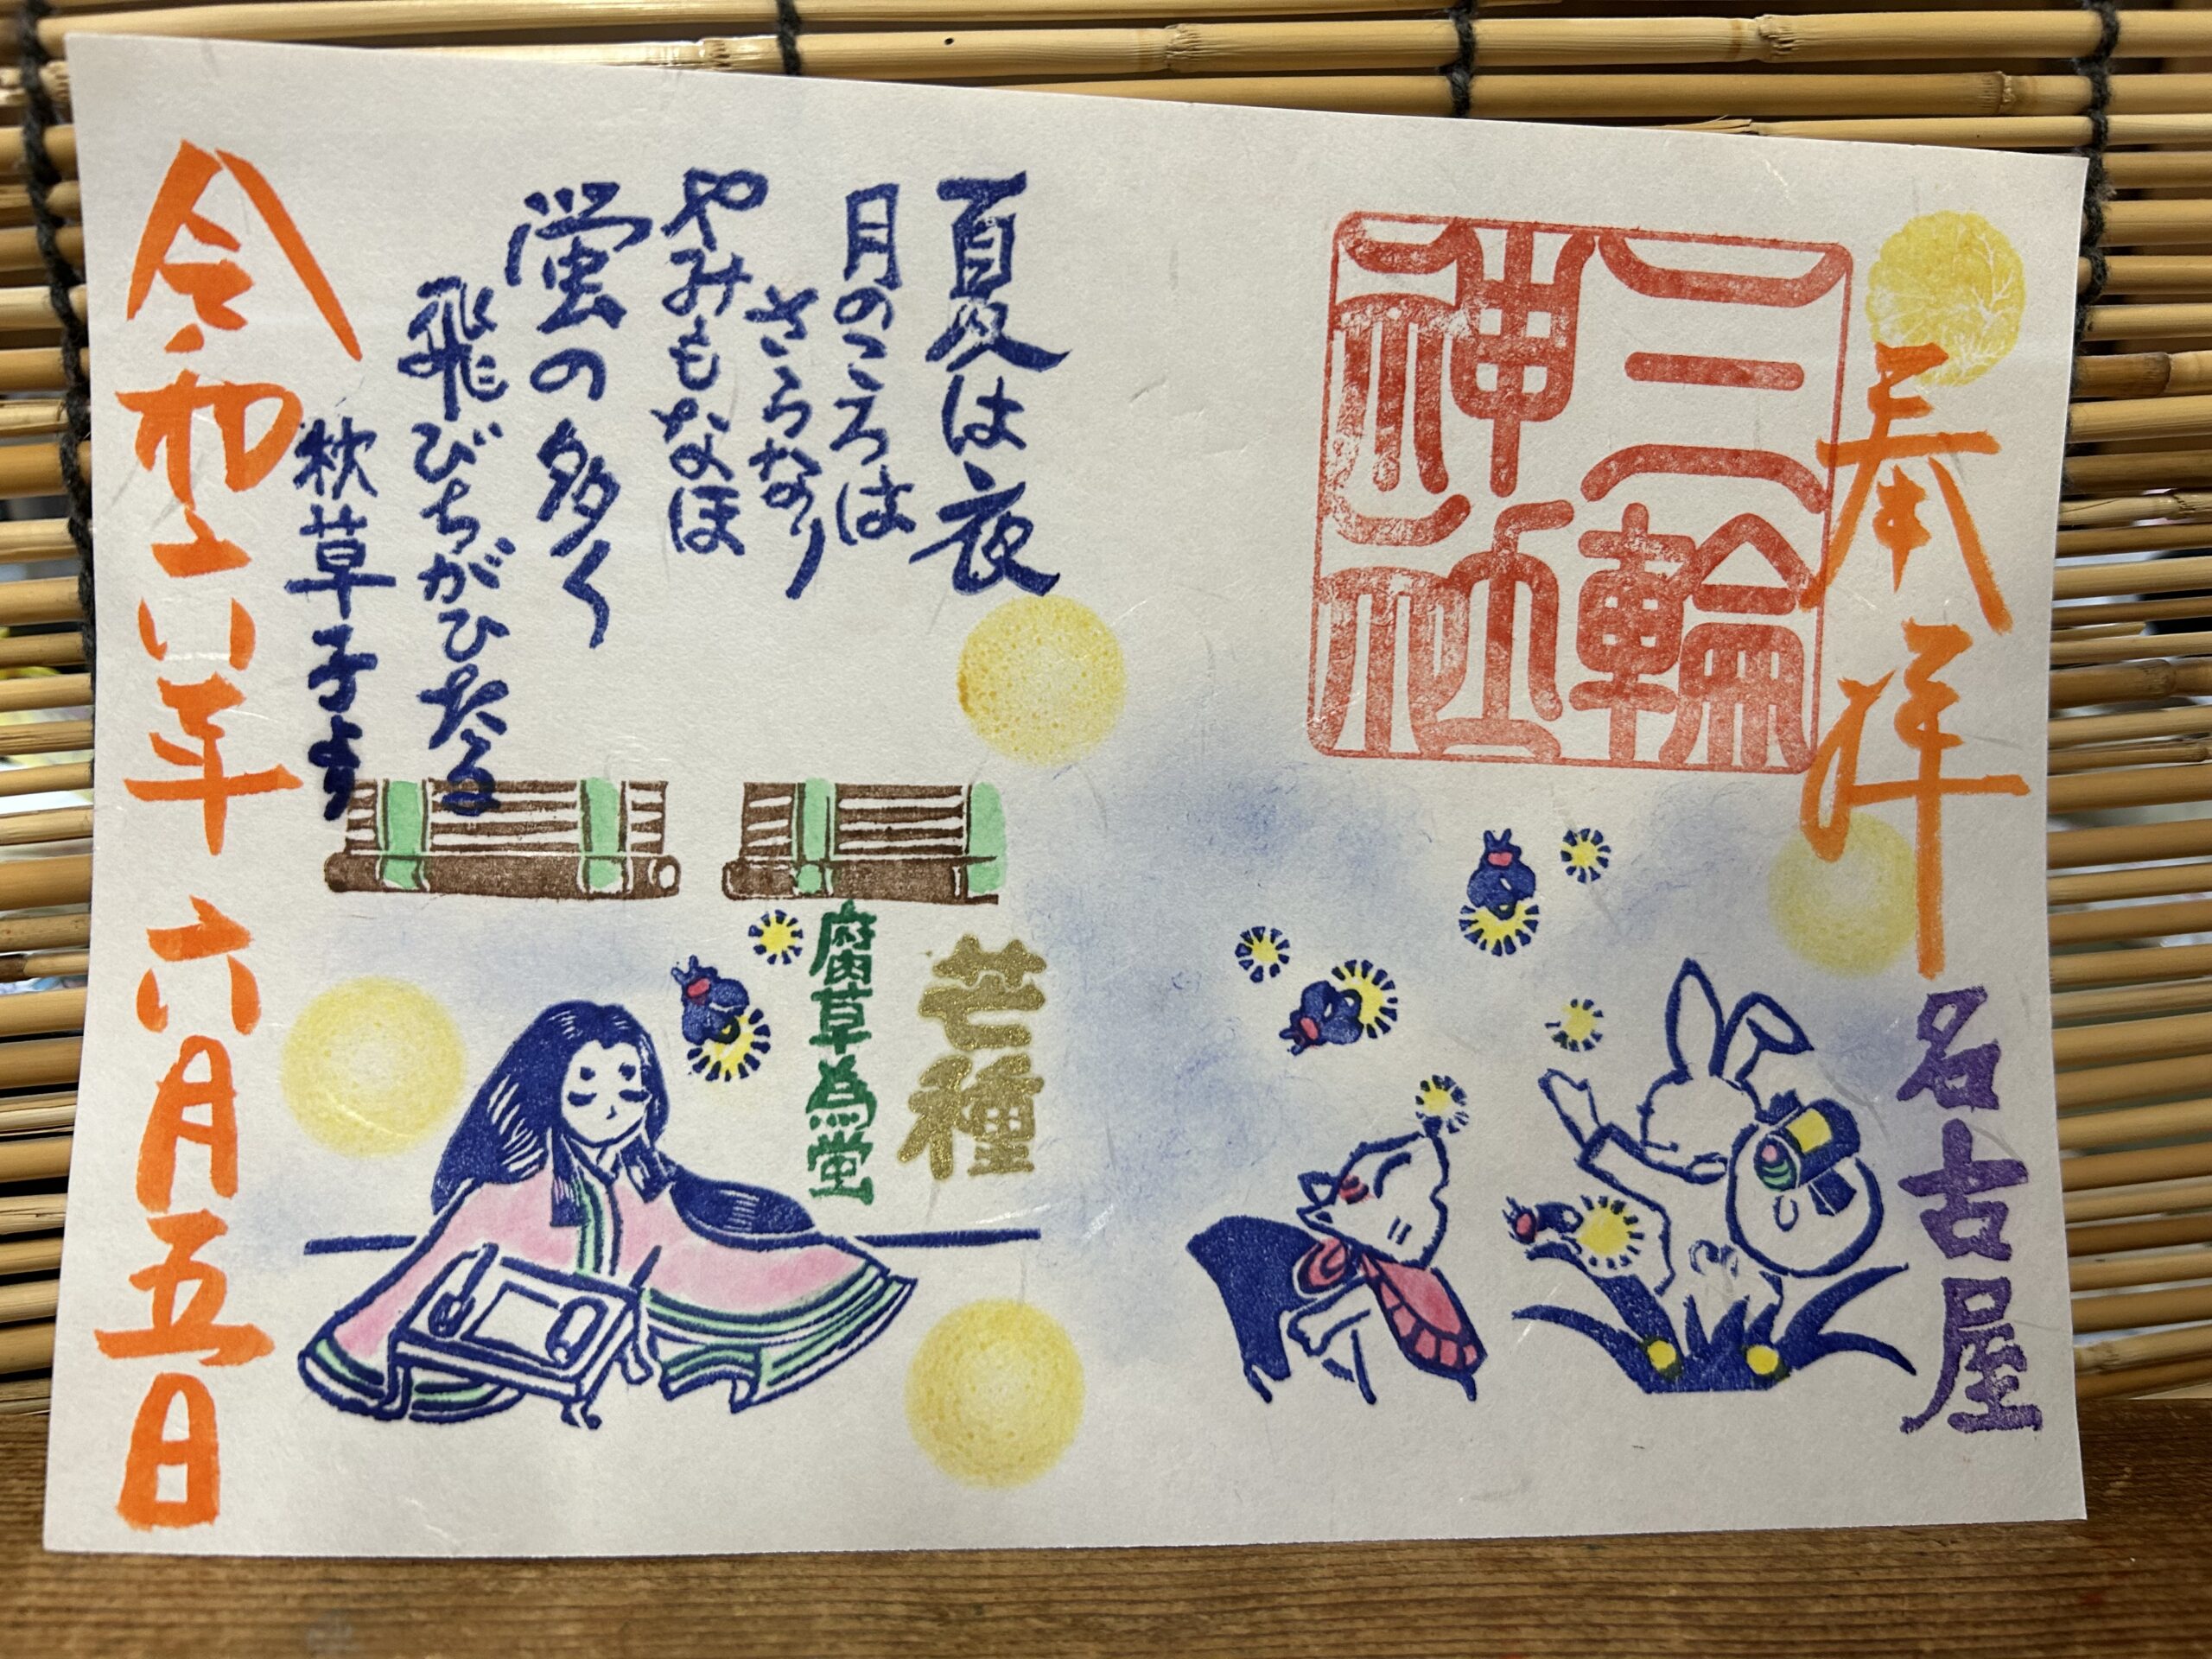 奉拝
名古屋
三輪
神社
夏は夜
月のころは
さらなり
やみもなほ
蛍の多く
飛びちがひたる
枕草子より
芒種
腐草為蛍
令和六年六月五日